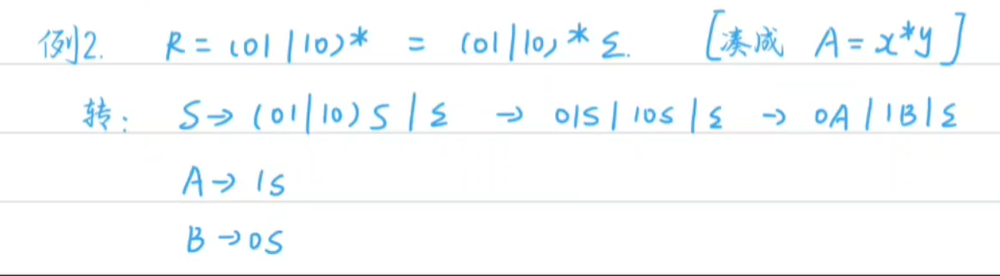 例2. R = (01|10)* = (01|10)*ε. [凑成 A = x*y]
转: S→(01|10)S|ε → 01S|10S|ε → 0A|1B|ε
A→1S
B→0S